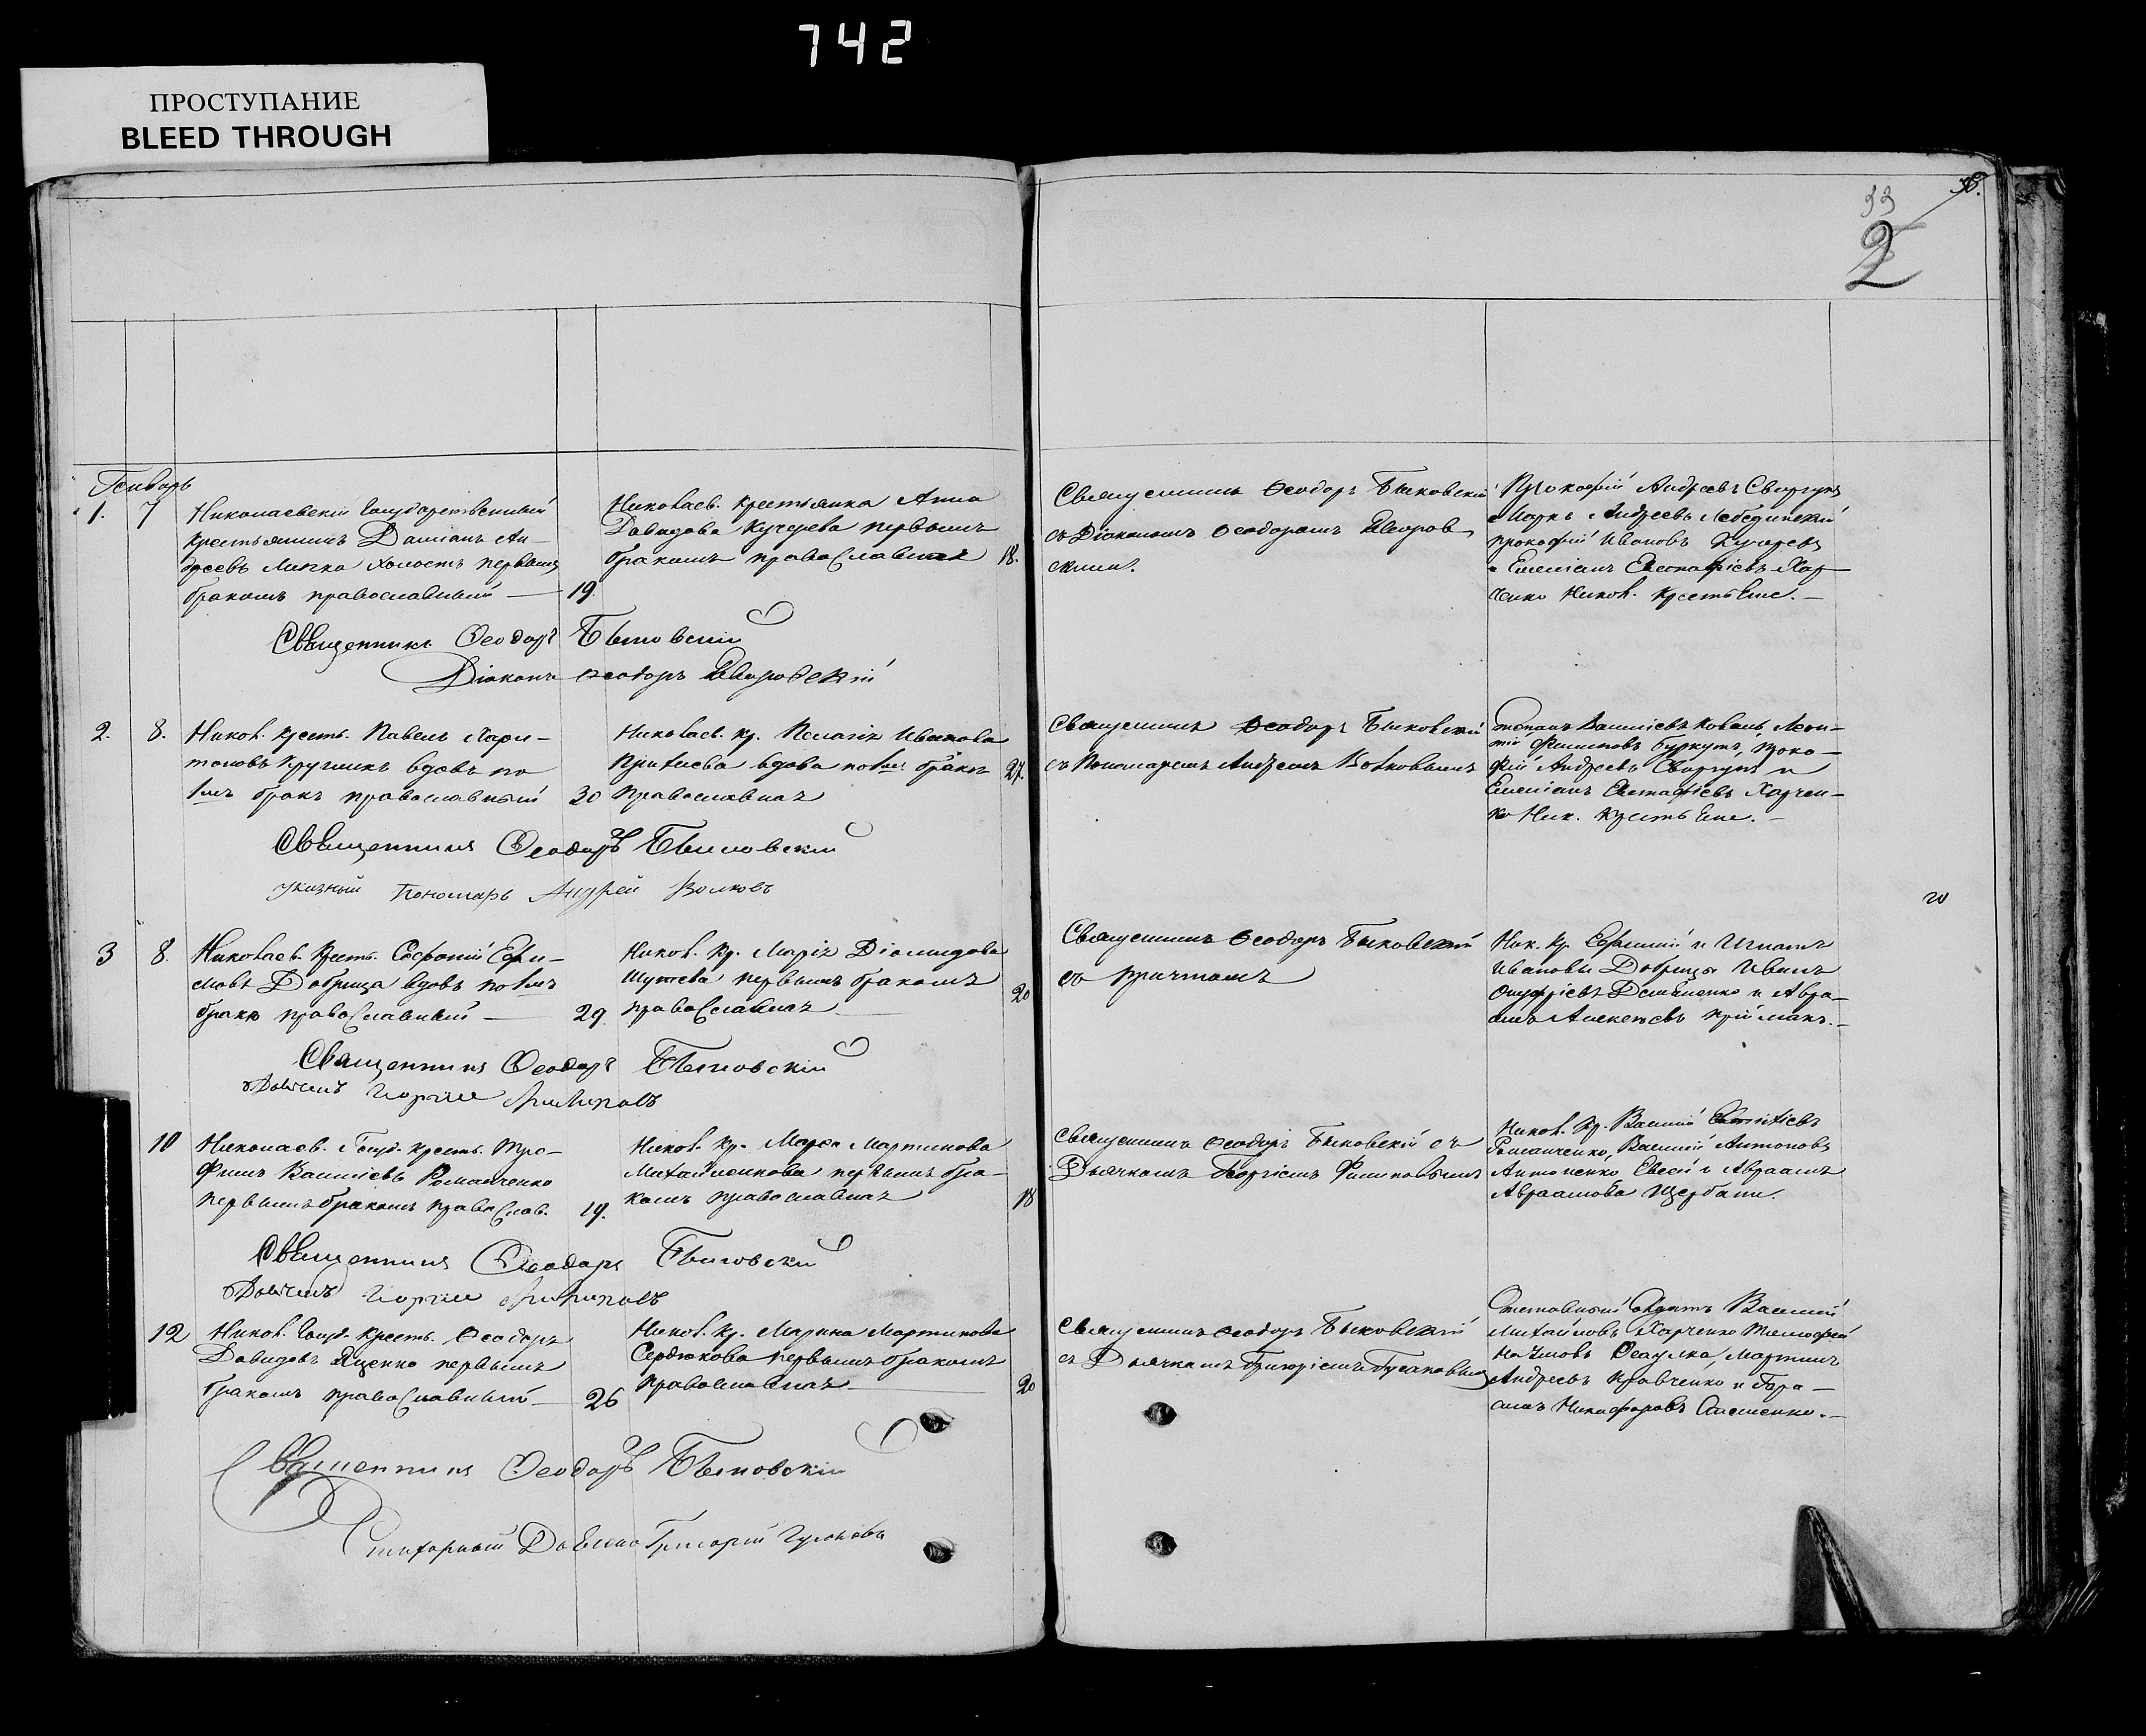 742
ПРОСТУПАНИЕ
BLEED THROUGH
33
2
Генварь
1. 7 Николаевскій Государственный
крестьянинъ Даміанъ Ан-
дреевъ Липка холостъ первымъ
бракомъ православный — 19.
Николаев. крестьянка Анна
Давидова Кучерева первымъ
бракомъ православная 18.
Священникъ Ѳеодоръ Быковскій
съ Діакономъ Ѳеодоромъ
Прокофій Андреевъ
Маркъ Андреевъ Лебединскій
прокофій Ивановъ Кучеревъ
и Емеліанъ Евстафіевъ Хар-
ченко Никол. крестьяне. —
Священникъ Ѳеодоръ Быковскій
Діаконъ Ѳеодоръ
2. 8. Никол. крест. Павелъ Хари-
тоновъ Кругликъ вдовъ по
1мъ бракѣ православный 30
Николаев. кр. Пелагія Иванова
вдова по 1мъ бракѣ 27.
Православная
Священникъ Ѳеодоръ Быковскій
съ Пономаремъ Андреемъ Волковымъ
Степанъ Василіевъ Коваль, Леон-
тій Филиповъ Буркутъ, Проко-
фій Андреевъ и
Емеліанъ Евстафіевъ Харчен-
ко Ник. крестьяне. —
Священникъ Ѳеодоръ Быковскій
указный Пономарь Андрей Волковъ
3 8. Николаев. Крест. Софроній Ефи-
мовъ Добрица вдовъ по 1мъ
бракѣ православный — 29.
Никол. Кр. Марія Діомидова
первымъ бракомъ 20
православная
Священникъ Ѳеодоръ Быковскій
съ причтомъ
Ник. Кр. Ефимій и Игнатъ
Ивановы Добрицы Иванъ
Онуфріевъ Демьяненко и Авра-
амъ Алексѣевъ Прійманъ. —
Священникъ Ѳеодоръ Быковскій
Дьячекъ Георгій Филиповъ
10 Николаев. Госуд. крест. Тро-
фимъ Василіевъ Романченко
первымъ бракомъ Православ. 19.
Никол. Кр. Марѳа Мартинова
Михайленкова первымъ бра-
комъ православная 18
Священникъ Ѳеодоръ Быковскій съ
Дьячкомъ Георгіемъ Филиповымъ
Никол. Кр. Василій
Романченко, Василій Антоновъ
Антоненко, Евсей и Авраамъ
Авраамова Щербаки.
Священникъ Ѳеодоръ Быковскій
Дьячекъ Георгій Филиповъ
12 Никол. Госуд. Крест. Ѳеодоръ
Давидовъ Яценко первымъ
бракомъ православный — 26
Никол. Кр. Марина Мартинова
Сердюкова первымъ бракомъ
православная 20
Священникъ Ѳеодоръ Быковскій
съ Дьячкомъ Григоріемъ
Отставный Солдатъ Василій
Михайловъ Харченко Тимофей
Наумовъ Осаулка Мартинъ
Андреевъ Кравченко и Гара-
симъ Никифоровъ
Священникъ Ѳеодоръ Быковскій
Стихарный Дьячекъ Григорій